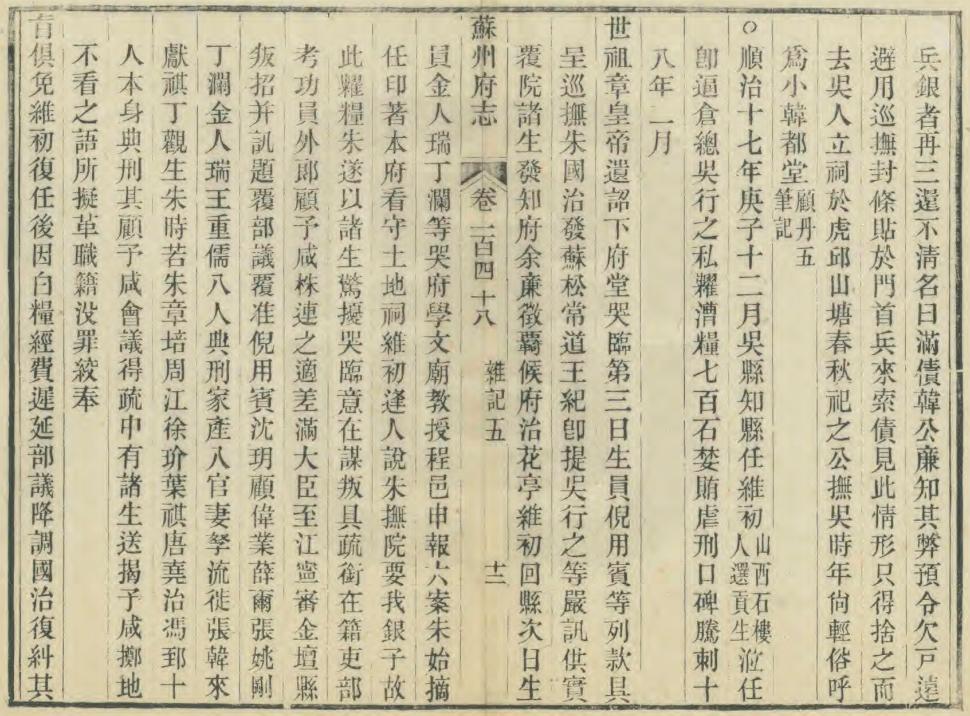 兵銀者再三還不清名曰滿債韓公廉知其弊預令欠戸遠
避用巡撫封條貼於門首兵來索債見此情形只得捨之而
去吳人立祠於虎邱山塘春秋祀之公撫吳時年尙輕俗呼
爲小韓都堂顧丹五筆記
○順治十七年庚子十二月吳縣知縣任維初山西石樓人選貢生涖任
卽逼倉總吳行之私糶漕糧七百石婪賄虐刑口碑騰刺十
八年二月
世祖章皇帝遺詔下府堂哭臨第三日生員倪用賓等列款具
呈巡撫朱國治發蘇松常道王紀卽提吳行之等嚴訊供實
覆院諸生發知府余廉徵覊候府治花亭維初回縣次日生
蘇州府志 卷一百四十八 雜記五 十二
員金人瑞丁瀾等哭府學文廟教授程邑申報六案朱始摘
任印著本府看守土地祠維初逢人說朱撫院要我銀子故
此糶糧朱遂以諸生驚擾哭臨意在謀叛具疏銜在籍吏部
考功員外郞顧予咸株連之適差滿大臣至江寧審金壇縣
叛招并訊題覆部議覆准倪用賓沈玥顧偉業薛爾張姚剛
丁瀾金人瑞王重儒八人典刑家產入官妻孥流徙張韓來
獻祺丁觀生朱時若朱章培周江徐玠葉祺唐堯治馮郅十
人本身典刑其顧予咸會議得疏中有諸生送揭予咸擲地
不看之語所擬革職籍没罪絞奉
旨俱免維初復任後因白糧經費遲延部議降調國治復糾其